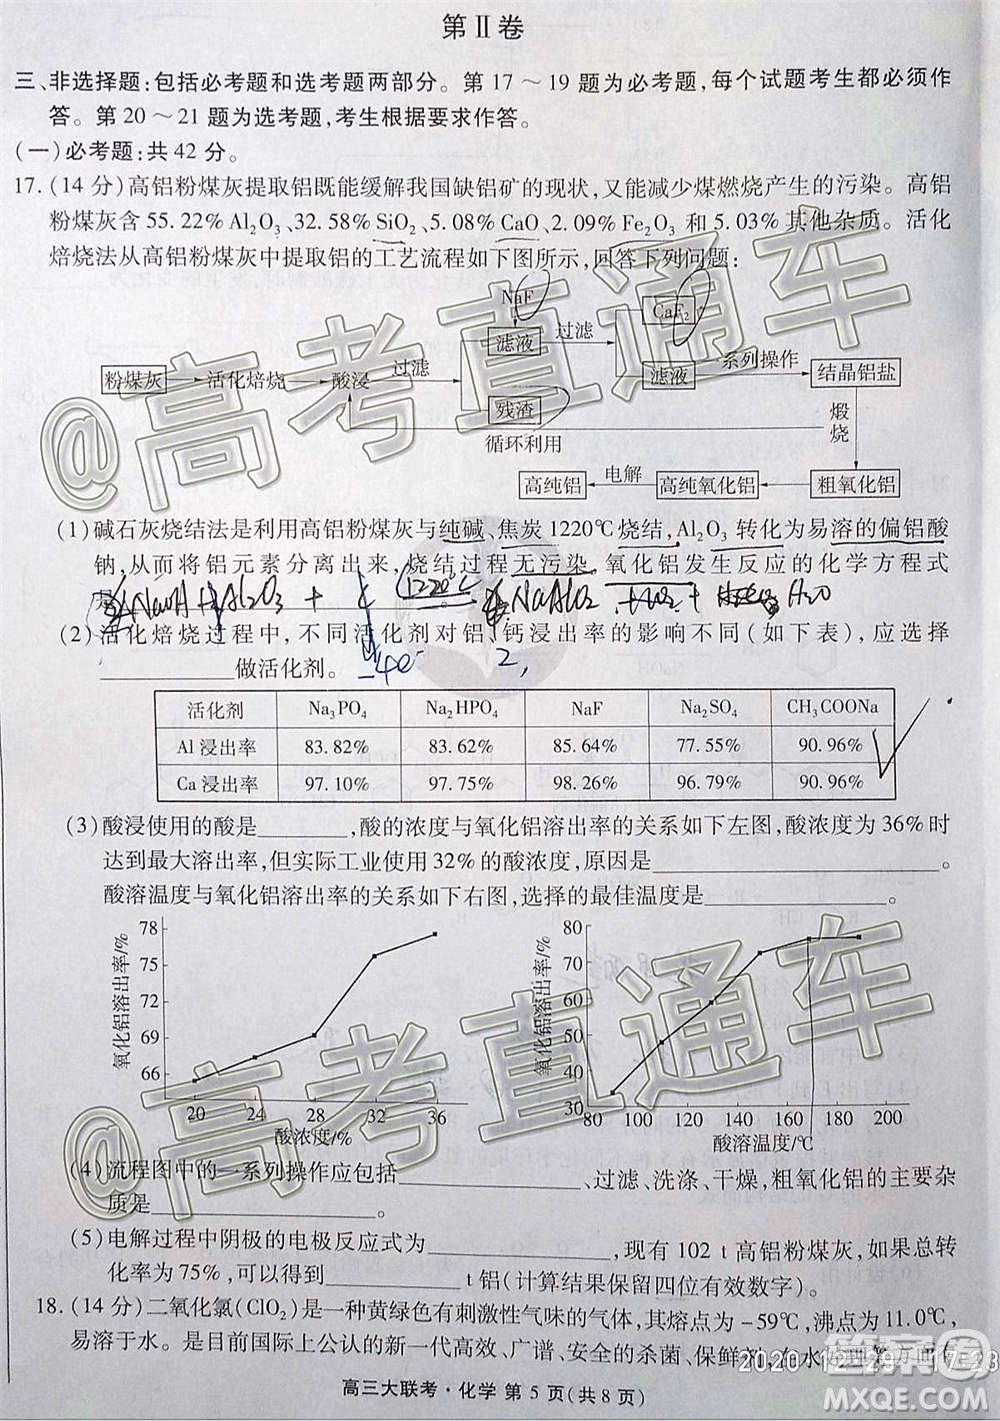 第Ⅱ卷
三、非选择题:包括必考题和选考题两部分。第17～19题为必考题,每个试题考生都必须作
答。第20～21题为选考题,考生根据要求作答。
(一)必考题:共42分。
17.(14分)高铝粉煤灰提取铝既能缓解我国缺铝矿的现状,又能减少煤燃烧产生的污染。高铝
粉煤灰含55.22%Al₂O₃、32.58%SiO₂、5.08%CaO、2.09%Fe₂O₃和5.03%其他杂质。活化
焙烧法从高铝粉煤灰中提取铝的工艺流程如下图所示,回答下列问题:
NaF
CaF₂
滤液
过滤
粉煤灰
活化焙烧
酸浸
过滤
残渣
滤液
系列操作
结晶铝盐
循环利用
煅烧
高纯铝
电解
高纯氧化铝
粗氧化铝
(1)碱石灰烧结法是利用高铝粉煤灰与纯碱、焦炭1220℃烧结,Al₂O₃转化为易溶的偏铝酸
钠,从而将铝元素分离出来,烧结过程无污染,氧化铝发生反应的化学方程式
(2)活化焙烧过程中,不同活化剂对铝、钙浸出率的影响不同(如下表),应选择
做活化剂。
-4e⁻
2,
活化剂 Na₃PO₄ Na₂HPO₄ NaF Na₂SO₄ CH₃COONa
Al浸出率 83.82% 83.62% 85.64% 77.55% 90.96%
Ca浸出率 97.10% 97.65% 98.26% 96.79% 90.96%
(3)酸浸使用的酸是________,酸的浓度与氧化铝溶出率的关系如下左图,酸浓度为36%时
达到最大溶出率,但实际工业使用32%的酸浓度,原因是________。
酸溶温度与氧化铝溶出率的关系如下右图,选择的最佳温度是________。
氧化铝溶出率/%
78
75
72
69
66
20 24 28 32 36
酸浓度/%
氧化铝溶出率/%
80
70
60
50
40
30
80 110 140 170 200
酸溶温度/℃
(4)流程图中的一系列操作应包括________、过滤、洗涤、干燥,粗氧化铝的主要杂
质是________。
(5)电解过程中阴极的电极反应式为________,现有102 t高铝粉煤灰,如果总转
化率为75%,可以得到________t铝(计算结果保留四位有效数字)。
18.(14分)二氧化氯(ClO₂)是一种黄绿色有刺激性气味的气体,其熔点为-59℃,沸点为11.0℃,
易溶于水。是目前国际上公认的新一代高效、广谱、安全的杀菌、保鲜剂,在水处理等方面有
高三大联考·化学 第5页(共8页)
2020-12-29 17:23
@高考直通车
@高考直通车
答案圈
MXQE.COM